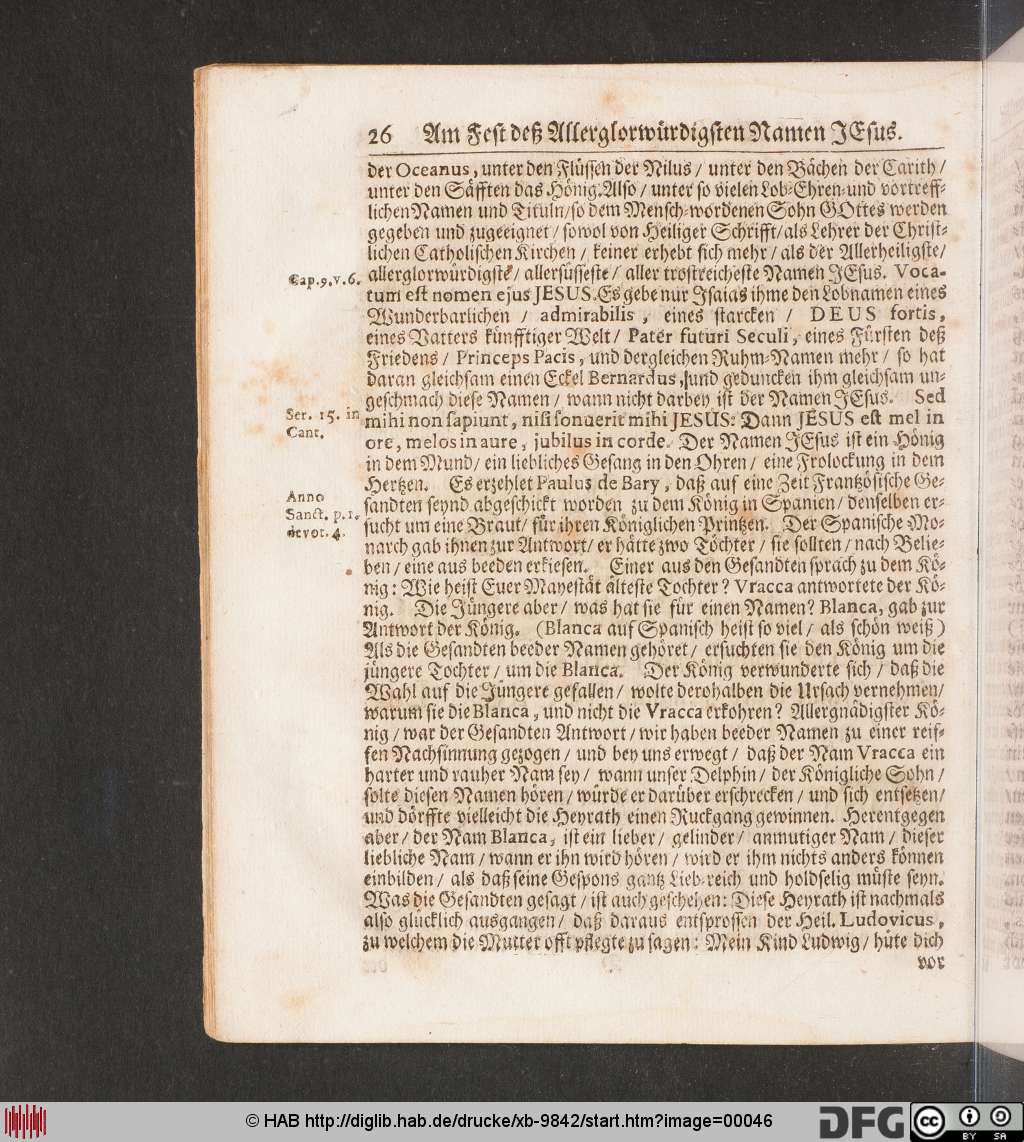 26 Am Fest deß Allerglorwürdigsten Namen JEsus.
der Oceanus, unter den Flüssen der Nilus / unter den Bächen der Carith /
unter den Säfften das Hönig. Also / unter so vielen Lob-Ehren-und vortreff-
lichen Namen und Tituln / so dem Mensch-wordenen Sohn GOttes werden
gegeben und zugeeignet / sowol von Heiliger Schrifft / als Lehrer der Christ-
lichen Catholischen Kirchen / keiner erhebt sich mehr / als der Allerheiligste /
Cap. 9. v. 6.
allerglorwürdigste / allersüsseste / aller trostreicheste Namen JEsus. Voca-
tum est nomen ejus JESUS. Es gebe nur Isaias ihme den Lobnamen eines
Wunderbarlichen / admirabilis, eines starcken / DEUS fortis,
eines Vatters künfftiger Welt / Pater futuri Seculi, eines Fürsten deß
Friedens / Princeps Pacis, und dergleichen Ruhm-Namen mehr / so hat
daran gleichsam einen Eckel Bernardus, und geduncken ihm gleichsam un-
geschmach diese Namen / wann nicht darbey ist der Namen JEsus. Sed
Ser. 15. in
Cant.
mihi non sapiunt, nisi sonuerit mihi JESUS: Dann JESUS est mel in
ore, melos in aure, jubilus in corde. Der Namen JEsus ist ein Hönig
in dem Mund / ein liebliches Gesang in den Ohren / eine Frolockung in dem
Hertzen. Es erzehlet Paulus de Bary, daß auf eine Zeit Frantzösische Ge-
Anno
Sanct. p. 1.
devot. 4.
sandten seynd abgeschickt worden zu dem König in Spanien / denselben er-
sucht um eine Braut / für ihren Königlichen Printzen. Der Spanische Mo-
narch gab ihnen zur Antwort / er hätte zwo Töchter / sie sollten / nach Belie-
ben / eine aus beeden erkiesen. Einer aus den Gesandten sprach zu dem Kö-
nig: Wie heist Euer Mayestät älteste Tochter? Vracca antwortete der Kö-
nig. Die Jüngere aber / was hat sie für einen Namen? Blanca, gab zur
Antwort der König. (Blanca auf Spanisch heist so viel / als schön weiß)
Als die Gesandten beeder Namen gehöret / ersuchten sie den König um die
jüngere Tochter / um die Blanca. Der König verwunderte sich / daß die
Wahl auf die Jüngere gefallen / wolte derohalben die Ursach vernehmen /
warum sie die Blanca, und nicht die Vracca erkohren? Allergnädigster Kö-
nig / war der Gesandten Antwort / wir haben beeder Namen zu einer reif-
fen Nachsinnung gezogen / und bey uns erwegt / daß der Nam Vracca ein
harter und rauher Nam sey / wann unser Delphin / der Königliche Sohn /
solte diesen Namen hören / würde er darüber erschrecken / und sich entsetzen /
und dörffte vielleicht die Heyrath einen Ruckgang gewinnen. Herentgegen
aber / der Nam Blanca, ist ein lieber / gelinder / anmutiger Nam / dieser
liebliche Nam / wann er ihn wird hören / wird er ihm nichts anders können
einbilden / als daß seine Gespons gantz Lieb-reich und holdselig müste seyn.
Was die Gesandten gesagt / ist auch geschehen: Diese Heyrath ist nachmals
also glücklich ausgangen / daß daraus entsprossen der Heil. Ludovicus,
zu welchem die Mutter offt pflegte zu sagen: Mein Kind Ludwig / hüte dich
vor
© HAB http://diglib.hab.de/drucke/xb-9842/start.htm?image=00046
DFG
cc
BY SA